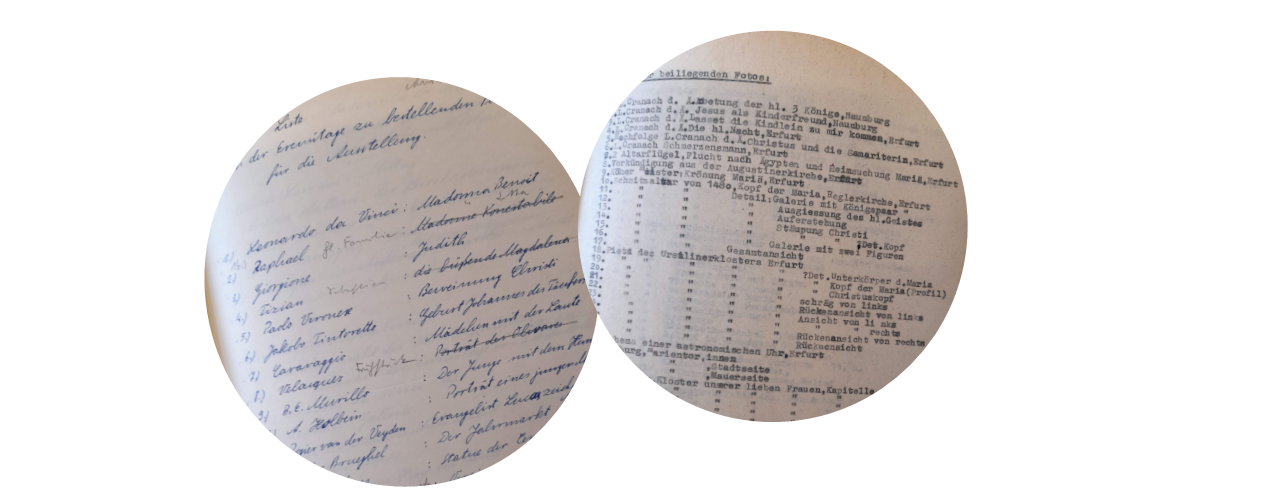 Liste
der Eremitage zu bestellenden
für die Ausstellung.
1) Leonardo da Vinci : Madonna Benoit
2) Raphael hl. Familie : Madonna Konestabile
3) Giorgione : Judith
4) Tizian : die büßende Magdalena
5) Paolo Veronex : Beweinung Christi
6) Jakobo Tintoretto : Geburt Johannes des Täufers
7) Caravaggio : Mädchen mit der Laute
8) Velasques Frühstück : Porträt des Olivares
B.E. Murillo : Der Junge mit dem
A. Holbein : Porträt eines jungen
van der Weyden : Evangelist Lucas
Brueghel : Der Jahrmarkt
: Statue der
beiliegenden Fotos:
L.Cranach d. Ä. Anbetung der hl. 3 Könige,Naumburg
L.Cranach d. Ä. Jesus als Kinderfreund,Naumburg
L.Cranach d.Ä.Lasset die Kindlein zu mir kommen,Erfurt
Cranach d.Ä.Die hl.Nacht,Erfurt
Nachfolge L.Cranach d.Ä.Christus und die Samariterin,Erfurt
Cranach Schmerzensmann,Erfurt
2 Altarflügel,Flucht nach Ägypten und Heimsuchung Mariä,Erfurt
8.Verkündigung aus der Augustinerkirche,Erfurt
9. Meister:Krönung Mariä,Erfurt
10. von 1480,Kopf der Maria,Reglerkirche,Erfurt
11. " " Detail:Galerie mit Königspaar "
12. " " Ausgiessung des hl.Geistes
13. " " Auferstehung
14. " " Stäupung Christi
15. " " " " ?Det.Kopf
16. " " Galerie mit zwei Figuren
17. " " Gesamtansicht
18.Pietà des Ursulinerklosters Erfurt
19. " " " " ?Det.Unterkörper d.Maria
20. " " " " Kopf der Maria(Profil)
21. " " " " Christuskopf
22. " " " " schräg von links
" " " " Rückenansicht von links
" " " " Ansicht von links
" " " " " " rechts
" " " " Rückenansicht von rechts
" " " " Rückansicht
einer astronomischen Uhr,Erfurt
innen
" " ,Stadtseite
" " ,Mauerseite
Kloster unserer lieben Frauen,Kapitelle
" " " " "